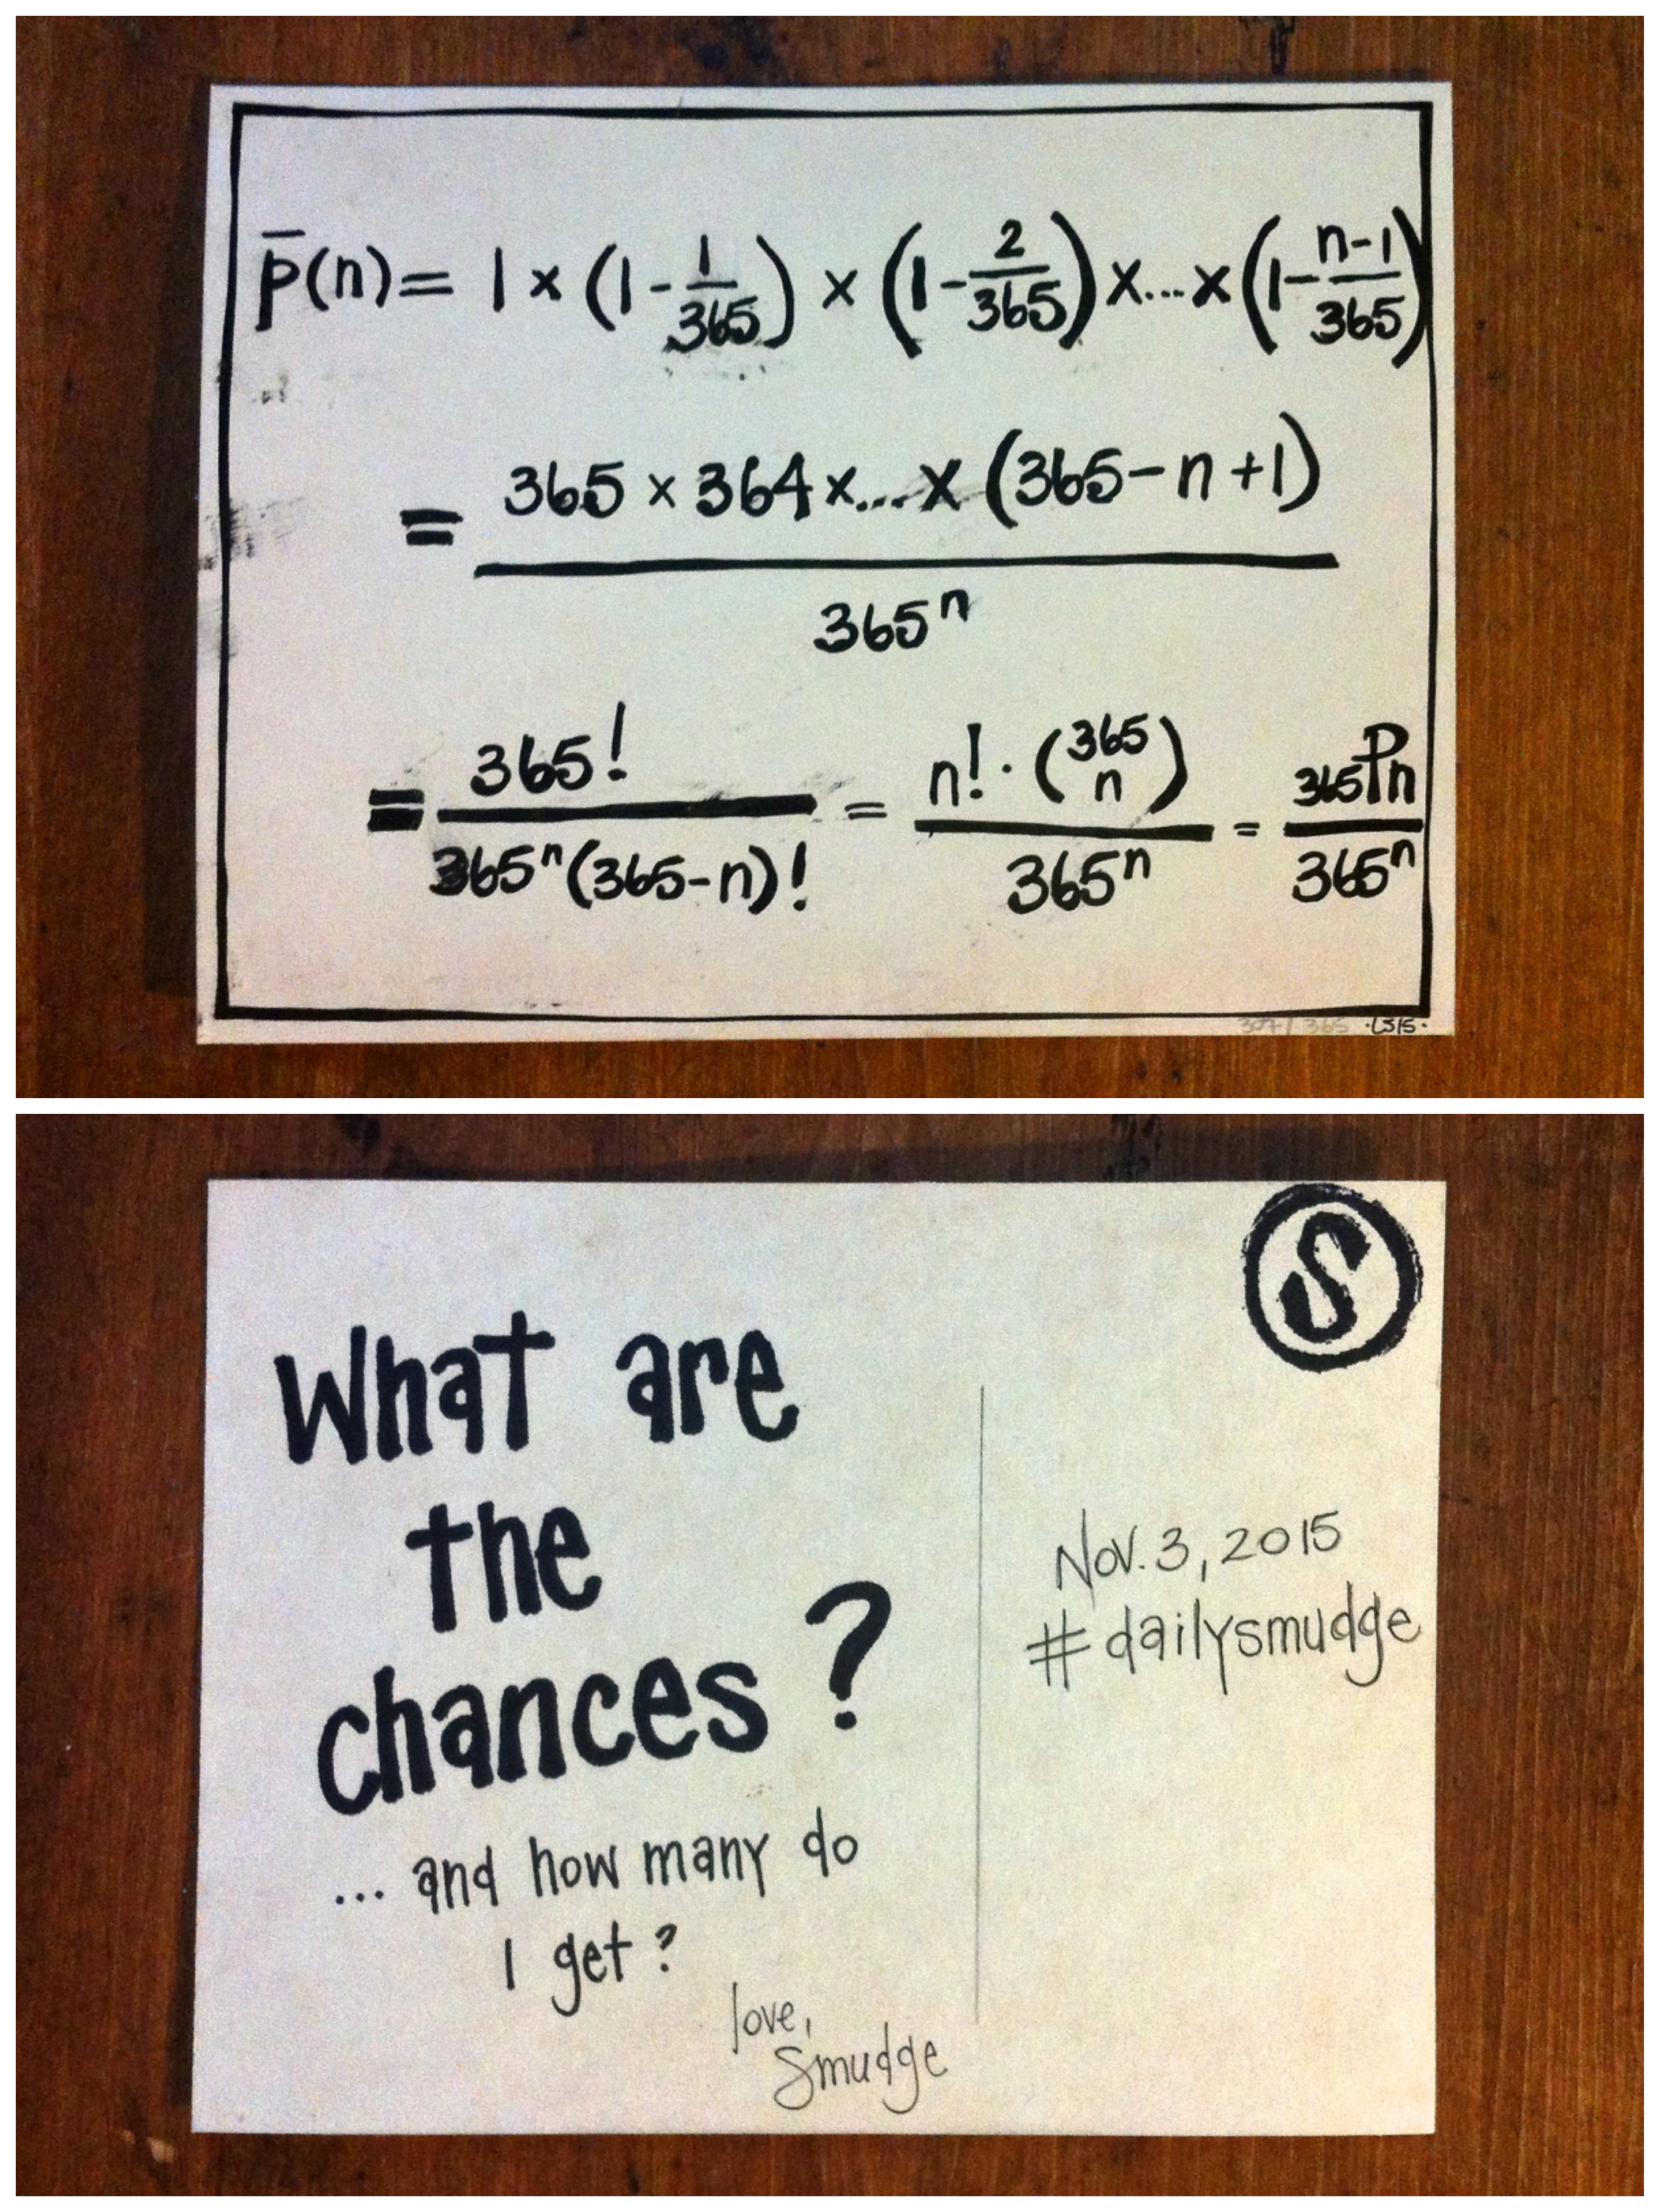 p̄(n) = 1 × (1 - 1/365) × (1 - 2/365) × ... × (1 - n-1/365)
= 365 × 364 × ... × (365 - n + 1) / 365ⁿ
= 365! / 365ⁿ(365-n)! = n! · (365 n) / 365ⁿ = 365Pn / 365ⁿ
307/365 ·LS15·
S
What are
the
chances?
... and how many do
I get?
love,
Smudge
Nov. 3, 2015
#dailysmudge